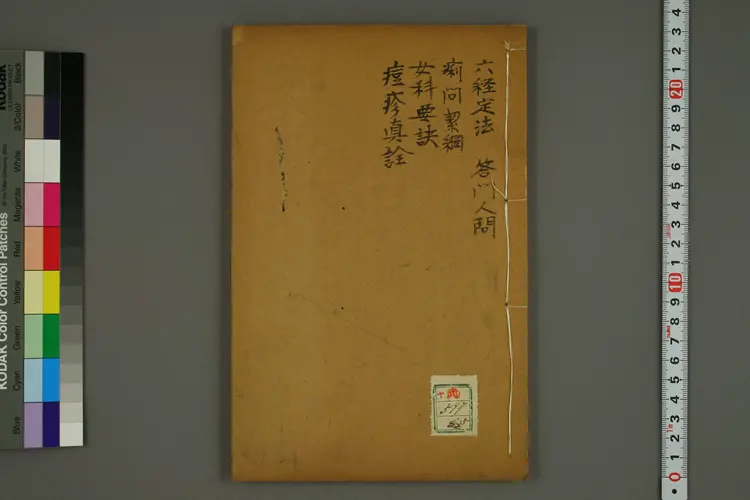 六経定法 答門人問
痢问絜綱
女科要訣
痘疹真詮
十
KODAK Color Control Patches
Kodak
Black
3/Color
White
Magenta
Red
Yellow
Green
Cyan
Blue
4
3
2
1
20
9
8
7
6
5
4
3
2
1
10
9
8
7
6
5
4
3
2
1
0